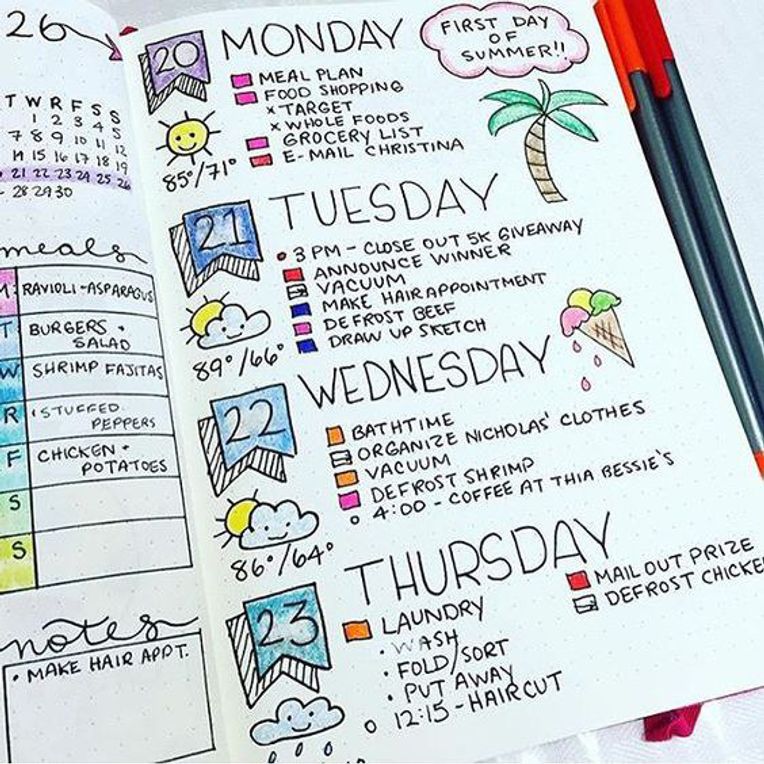 26
T W R F S S
1 2 3 4 5
7 8 9 10 11 12
14 15 16 17 18 19
21 22 23 24 25 26
28 29 30
meals
M RAVIOLI - ASPARAGUS
T BURGERS +
SALAD
W SHRIMP FAJITAS
R STUFFED
PEPPERS
F CHICKEN +
POTATOES
S
S
notes
• MAKE HAIR APPT.
20 MONDAY
FIRST DAY
OF
SUMMER!!
MEAL PLAN
FOOD SHOPPING
x TARGET
x WHOLE FOODS
GROCERY LIST
E-MAIL CHRISTINA
85°/71°
21 TUESDAY
• 3 PM - CLOSE OUT 5K GIVEAWAY
ANNOUNCE WINNER
VACUUM
MAKE HAIR APPOINTMENT
DEFROST BEEF
DRAW UP SKETCH
89°/66°
22 WEDNESDAY
BATHTIME
ORGANIZE NICHOLAS' CLOTHES
VACUUM
DEFROST SHRIMP
4:00 - COFFEE AT THIA BESSIE'S
86°/64°
23 THURSDAY
LAUNDRY
• WASH
• FOLD/SORT
• PUT AWAY
12:15 - HAIRCUT
MAIL OUT PRIZE
DEFROST CHICKE